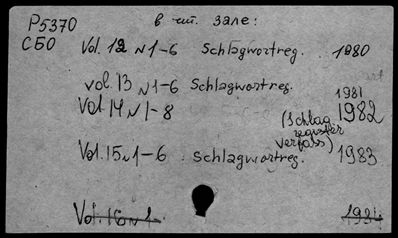 P5370 в чит. зале:
C50
Vol. 12 N1-6 Schlagwortreg. 1980
vol. 13 N1-6 Schlagwortreg. 1981
Vol 14 N1-8 (Schlag 1982
register
verfass)
Vol. 15 N1-6 Schlagwortreg. 1983
Vol. 16 N1- 1984